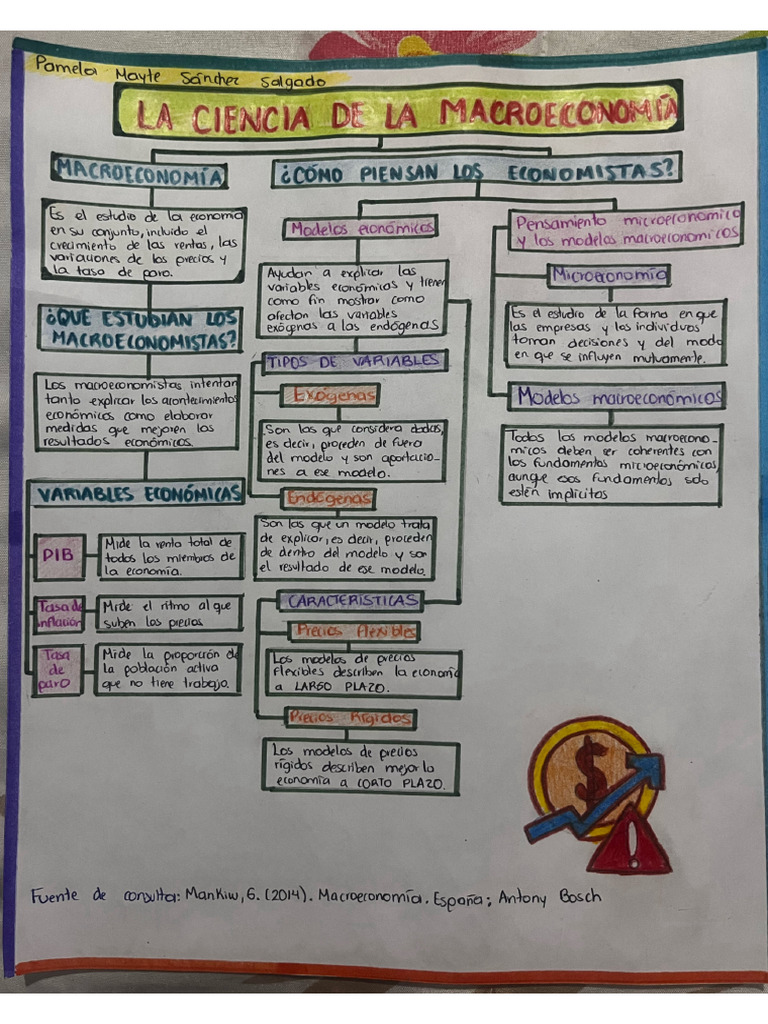 Pamela Mayte Sánchez Salgado
LA CIENCIA DE LA MACROECONOMÍA
MACROECONOMÍA
Es el estudio de la economía
en su conjunto, incluido el
crecimiento de las rentas, las
variaciones de los precios y
la tasa de paro.
¿QUÉ ESTUDIAN LOS
MACROECONOMISTAS?
Los macroeconomistas intentan
tanto explicar los acontecimientos
económicos como elaborar
medidas que mejoren los
resultados económicos.
VARIABLES ECONÓMICAS
PIB
Mide la renta total de
todos los miembros de
la economía.
Tasa de
inflación
Mide el ritmo al que
suben los precios
Tasa
de
paro
Mide la proporción de
la población activa
que no tiene trabajo.
¿CÓMO PIENSAN LOS ECONOMISTAS?
Modelos económicos
Ayudan a explicar las
variables económicas y tienen
como fin mostrar como
afectan las variables
exógenas a las endógenas
TIPOS DE VARIABLES
Exógenas
Son las que considera dadas,
es decir, proceden de fuera
del modelo y son aportacio-
nes a ese modelo.
Endógenas
Son las que un modelo trata
de explicar, es decir, proceden
de dentro del modelo y son
el resultado de ese modelo.
CARACTERÍSTICAS
Precios flexibles
Los modelos de precios
flexibles describen la economía
a LARGO PLAZO.
Precios Rígidos
Los modelos de precios
rígidos describen mejor la
economía a CORTO PLAZO.
Pensamiento microeconómico
y los modelos macroeconomicos
Microeconomía
Es el estudio de la forma en que
las empresas y los individuos
toman decisiones y del modo
en que se influyen mutuamente.
Modelos macroeconómicos
Todos los modelos macroecono-
micos deben ser coherentes con
los fundamentos microeconómicos,
aunque esos fundamentos solo
estén implicitos
$
!
Fuente de consulta: Mankiw, G. (2014). Macroeconomía. España; Antony Bosch